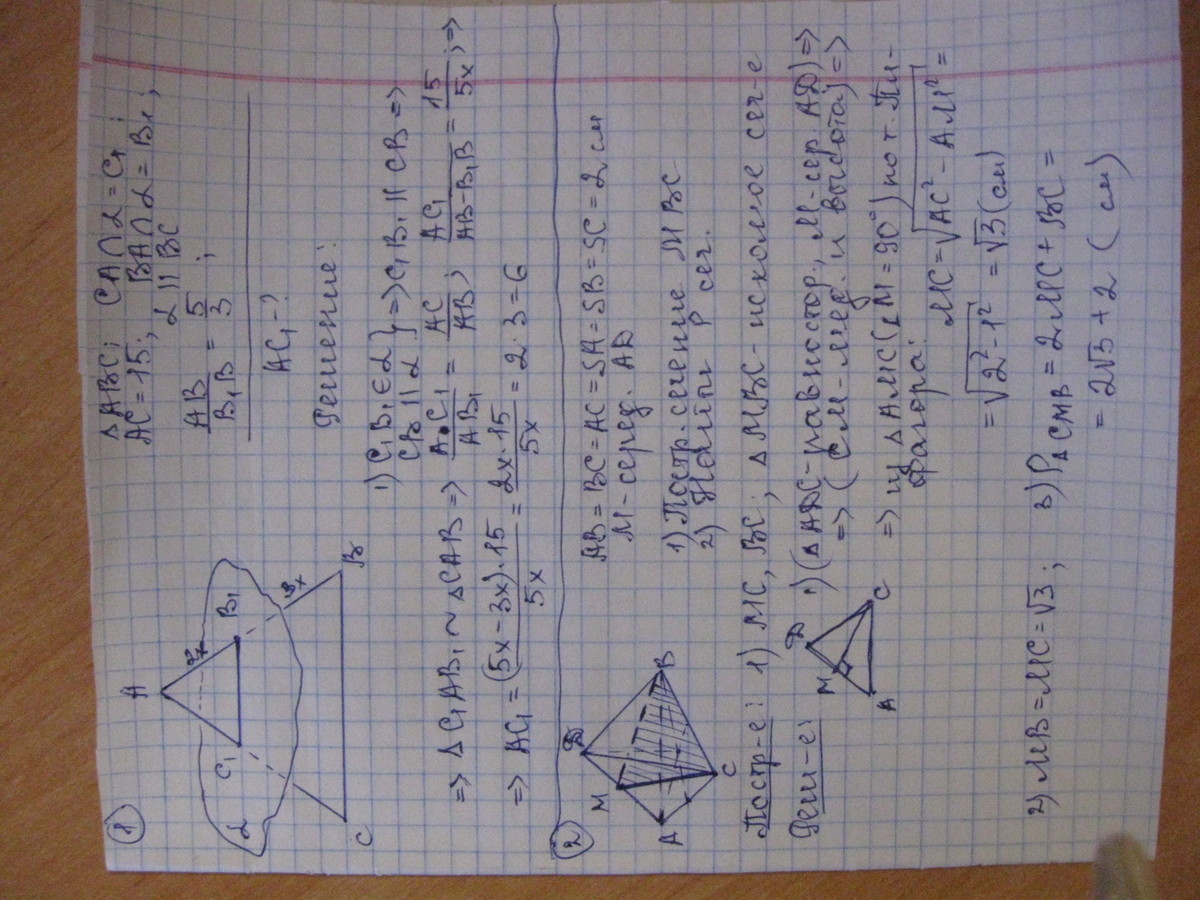 1
A
α
C₁
B₁
2x
3x
C
B
ΔABC; CA∩α=C₁;
AC=15; BA∩α=B₁;
α || BC
AB/B₁B = 5/3;
AC₁-?
Решение:
1) C₁B₁∈α
CB || α } => C₁B₁ || CB =>
=> ΔC₁AB₁ ~ ΔCAB => AC₁/AB₁ = AC/AB; AC₁/(AB-B₁B) = 15/5x; =>
=> AC₁ = (5x-3x)·15/5x = 2x·15/5x = 2·3=6
2
D
M
A
B
C
AB=BC=AC=SA=SB=SC=2 см
M-серед. AD
1) Постр. сечение MBC
2) Найти P сеч.
Постр-е: 1) MC, BC; ΔMBC-искомое сеч-е
Реш-е:
M
D
A
C
1) (ΔADC-равностор., M-сер. AD) =>
=> (CM-мед. и высота) =>
=> из ΔAMC(∠M=90°) по т. Пи-
фагора:
MC=√AC²-AM² =
=√2²-1² = √3(см)
2) MB=MC=√3; 3) P△CMB=2MC+BC=
= 2√3+2 (см)